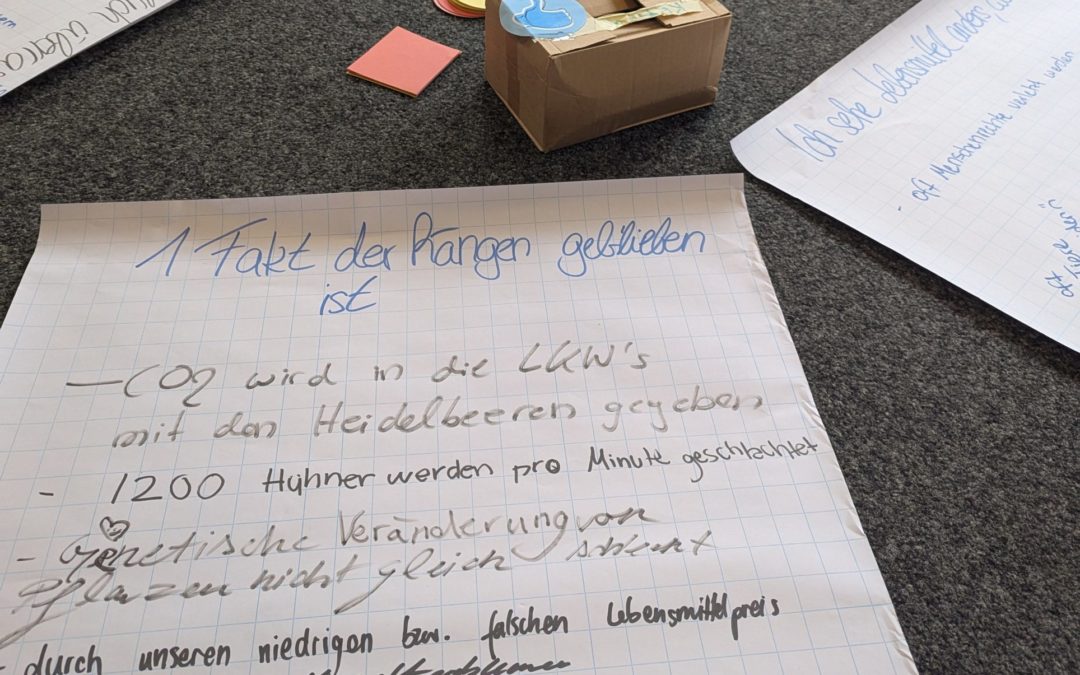 1 Fakt der hängen geblieben
ist
— CO2 wird in die LKW's
mit den Heidelbeeren gegeben
- 1200 Hühner werden pro Minute geschlachtet
- Genetische Veränderung von
Pflanzen nicht gleich schlecht
- durch unseren niedrigen bzw. falschen Lebensmittelpreis
Ich sehe Lebensmittel anders,
- oft Menschenrechte verletzt werden